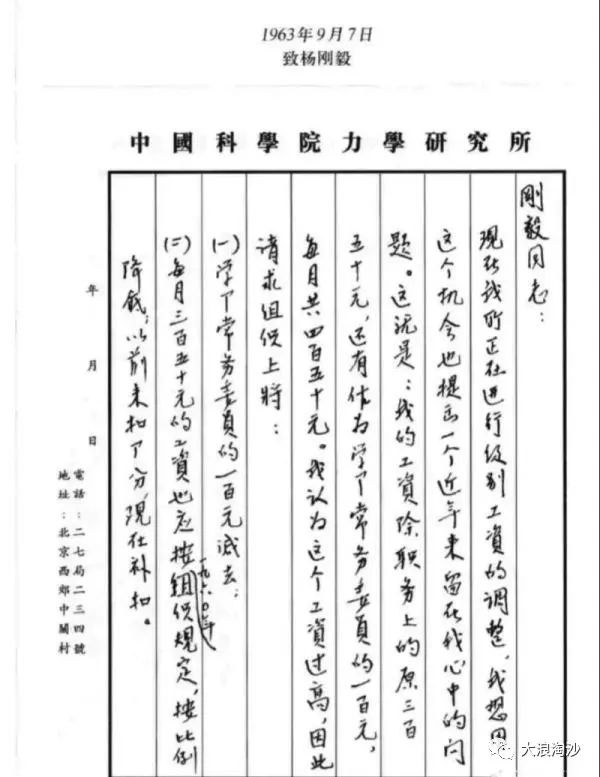 1963年9月7日
致杨刚毅
中國科學院力學研究所
剛毅同志：
现在我所正在进行级别工资的调整，我想
这个机会也提出一个近年来留在我心中的问
题。这就是：我的工资除职务上的原三百
五十元，还有作为学部常务委员的一百元，
每月共四百五十元。我认为这个工资过高，因此
请求组织上将：
(一)学部常务委员的一百元减去；
(二)每月三百五十元的工资也应按一九六〇年组织规定，按比例
降低；以前未扣部分，现在补扣。
年 月 日
電話：二七局二三四號
地址：北京西郊中關村
大浪淘沙